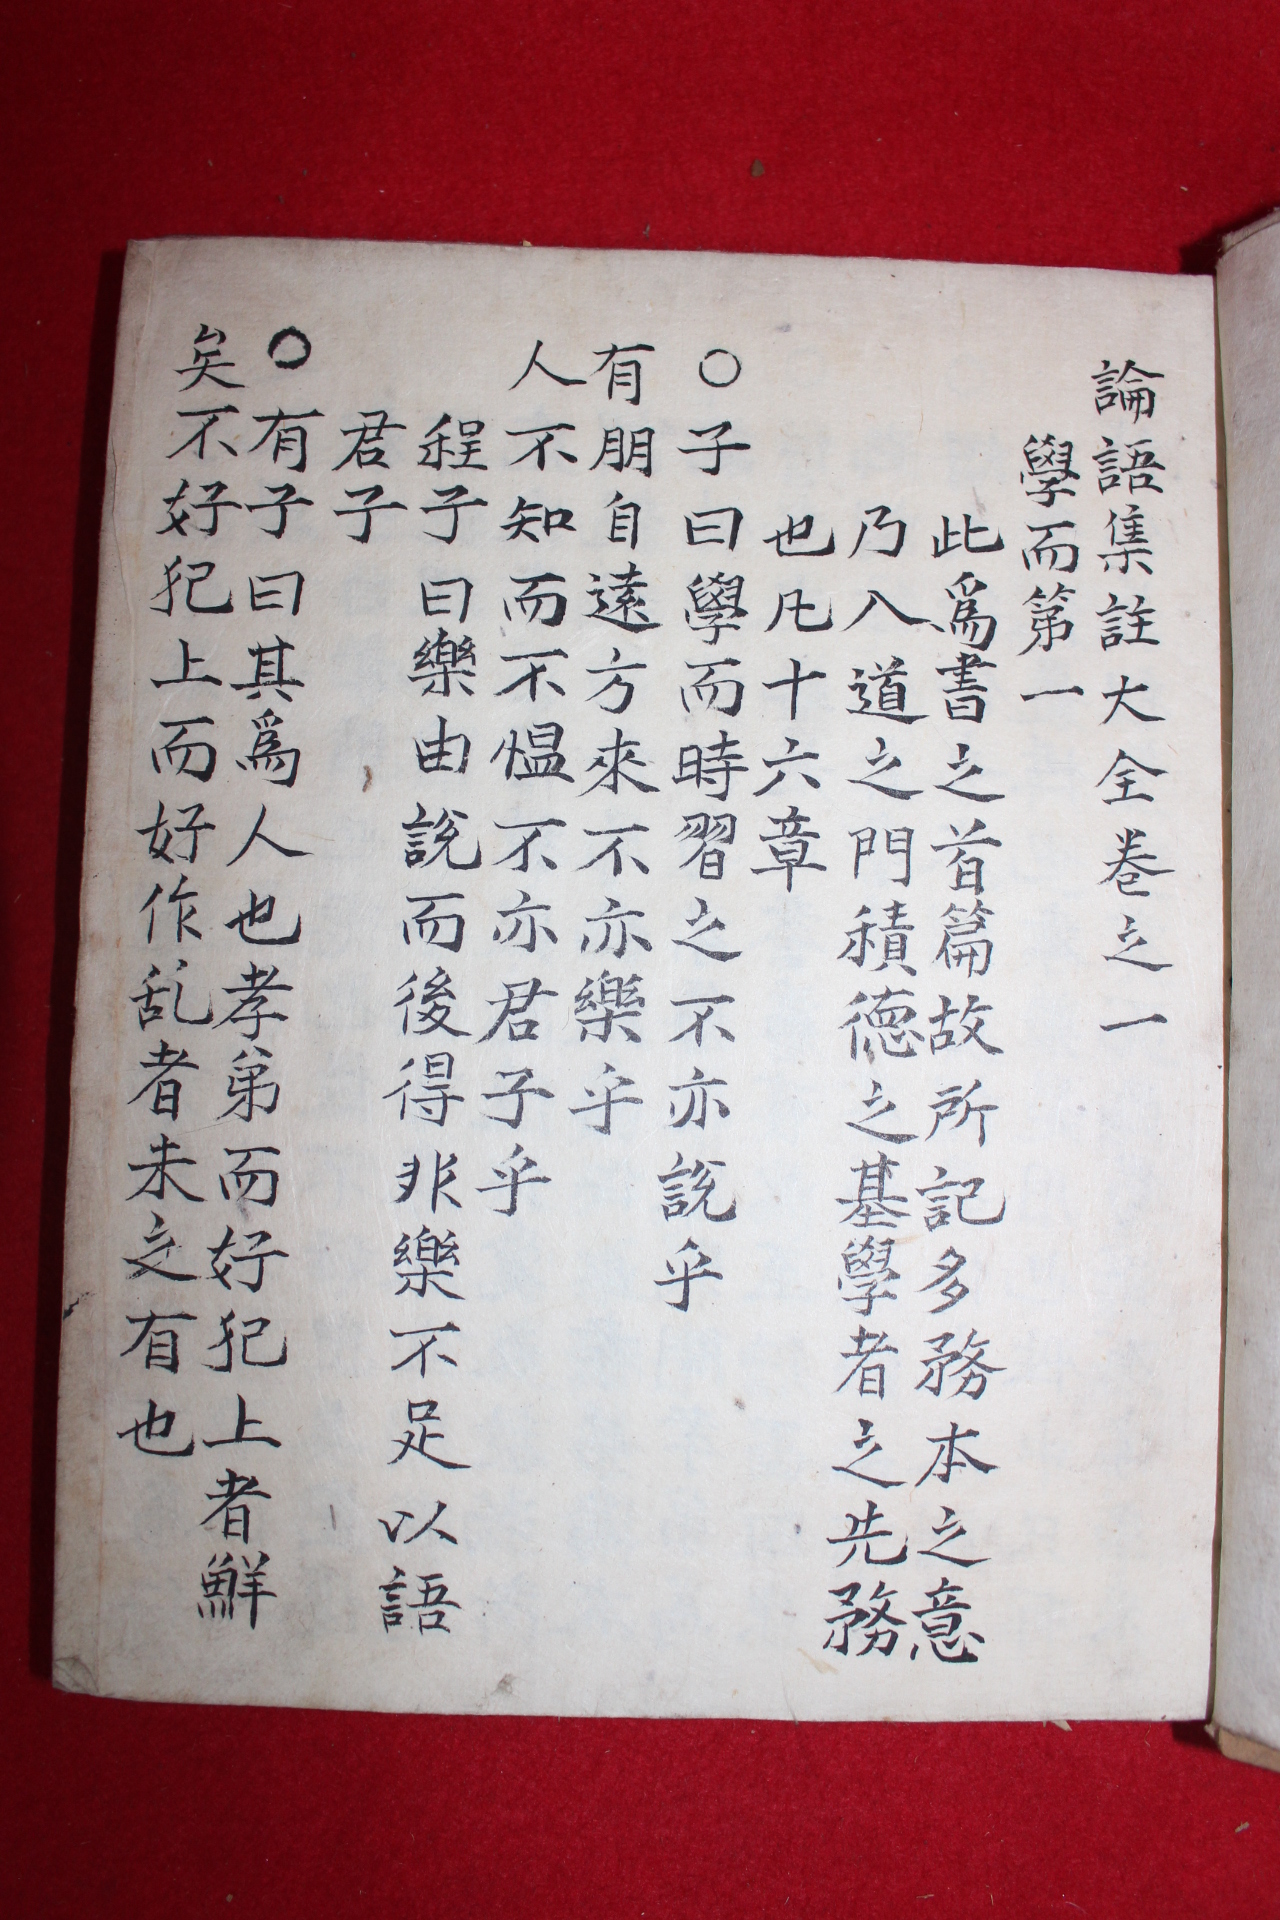 論語集註大全卷之一
學而第一
此爲書之首篇故所記多務本之意
乃入道之門積德之基學者之先務
也凡十六章
○子曰學而時習之不亦說乎
有朋自遠方來不亦樂乎
人不知而不慍不亦君子乎
程子曰樂由說而後得非樂不足以語
君子
○有子曰其爲人也孝弟而好犯上者鮮
矣不好犯上而好作乱者未之有也